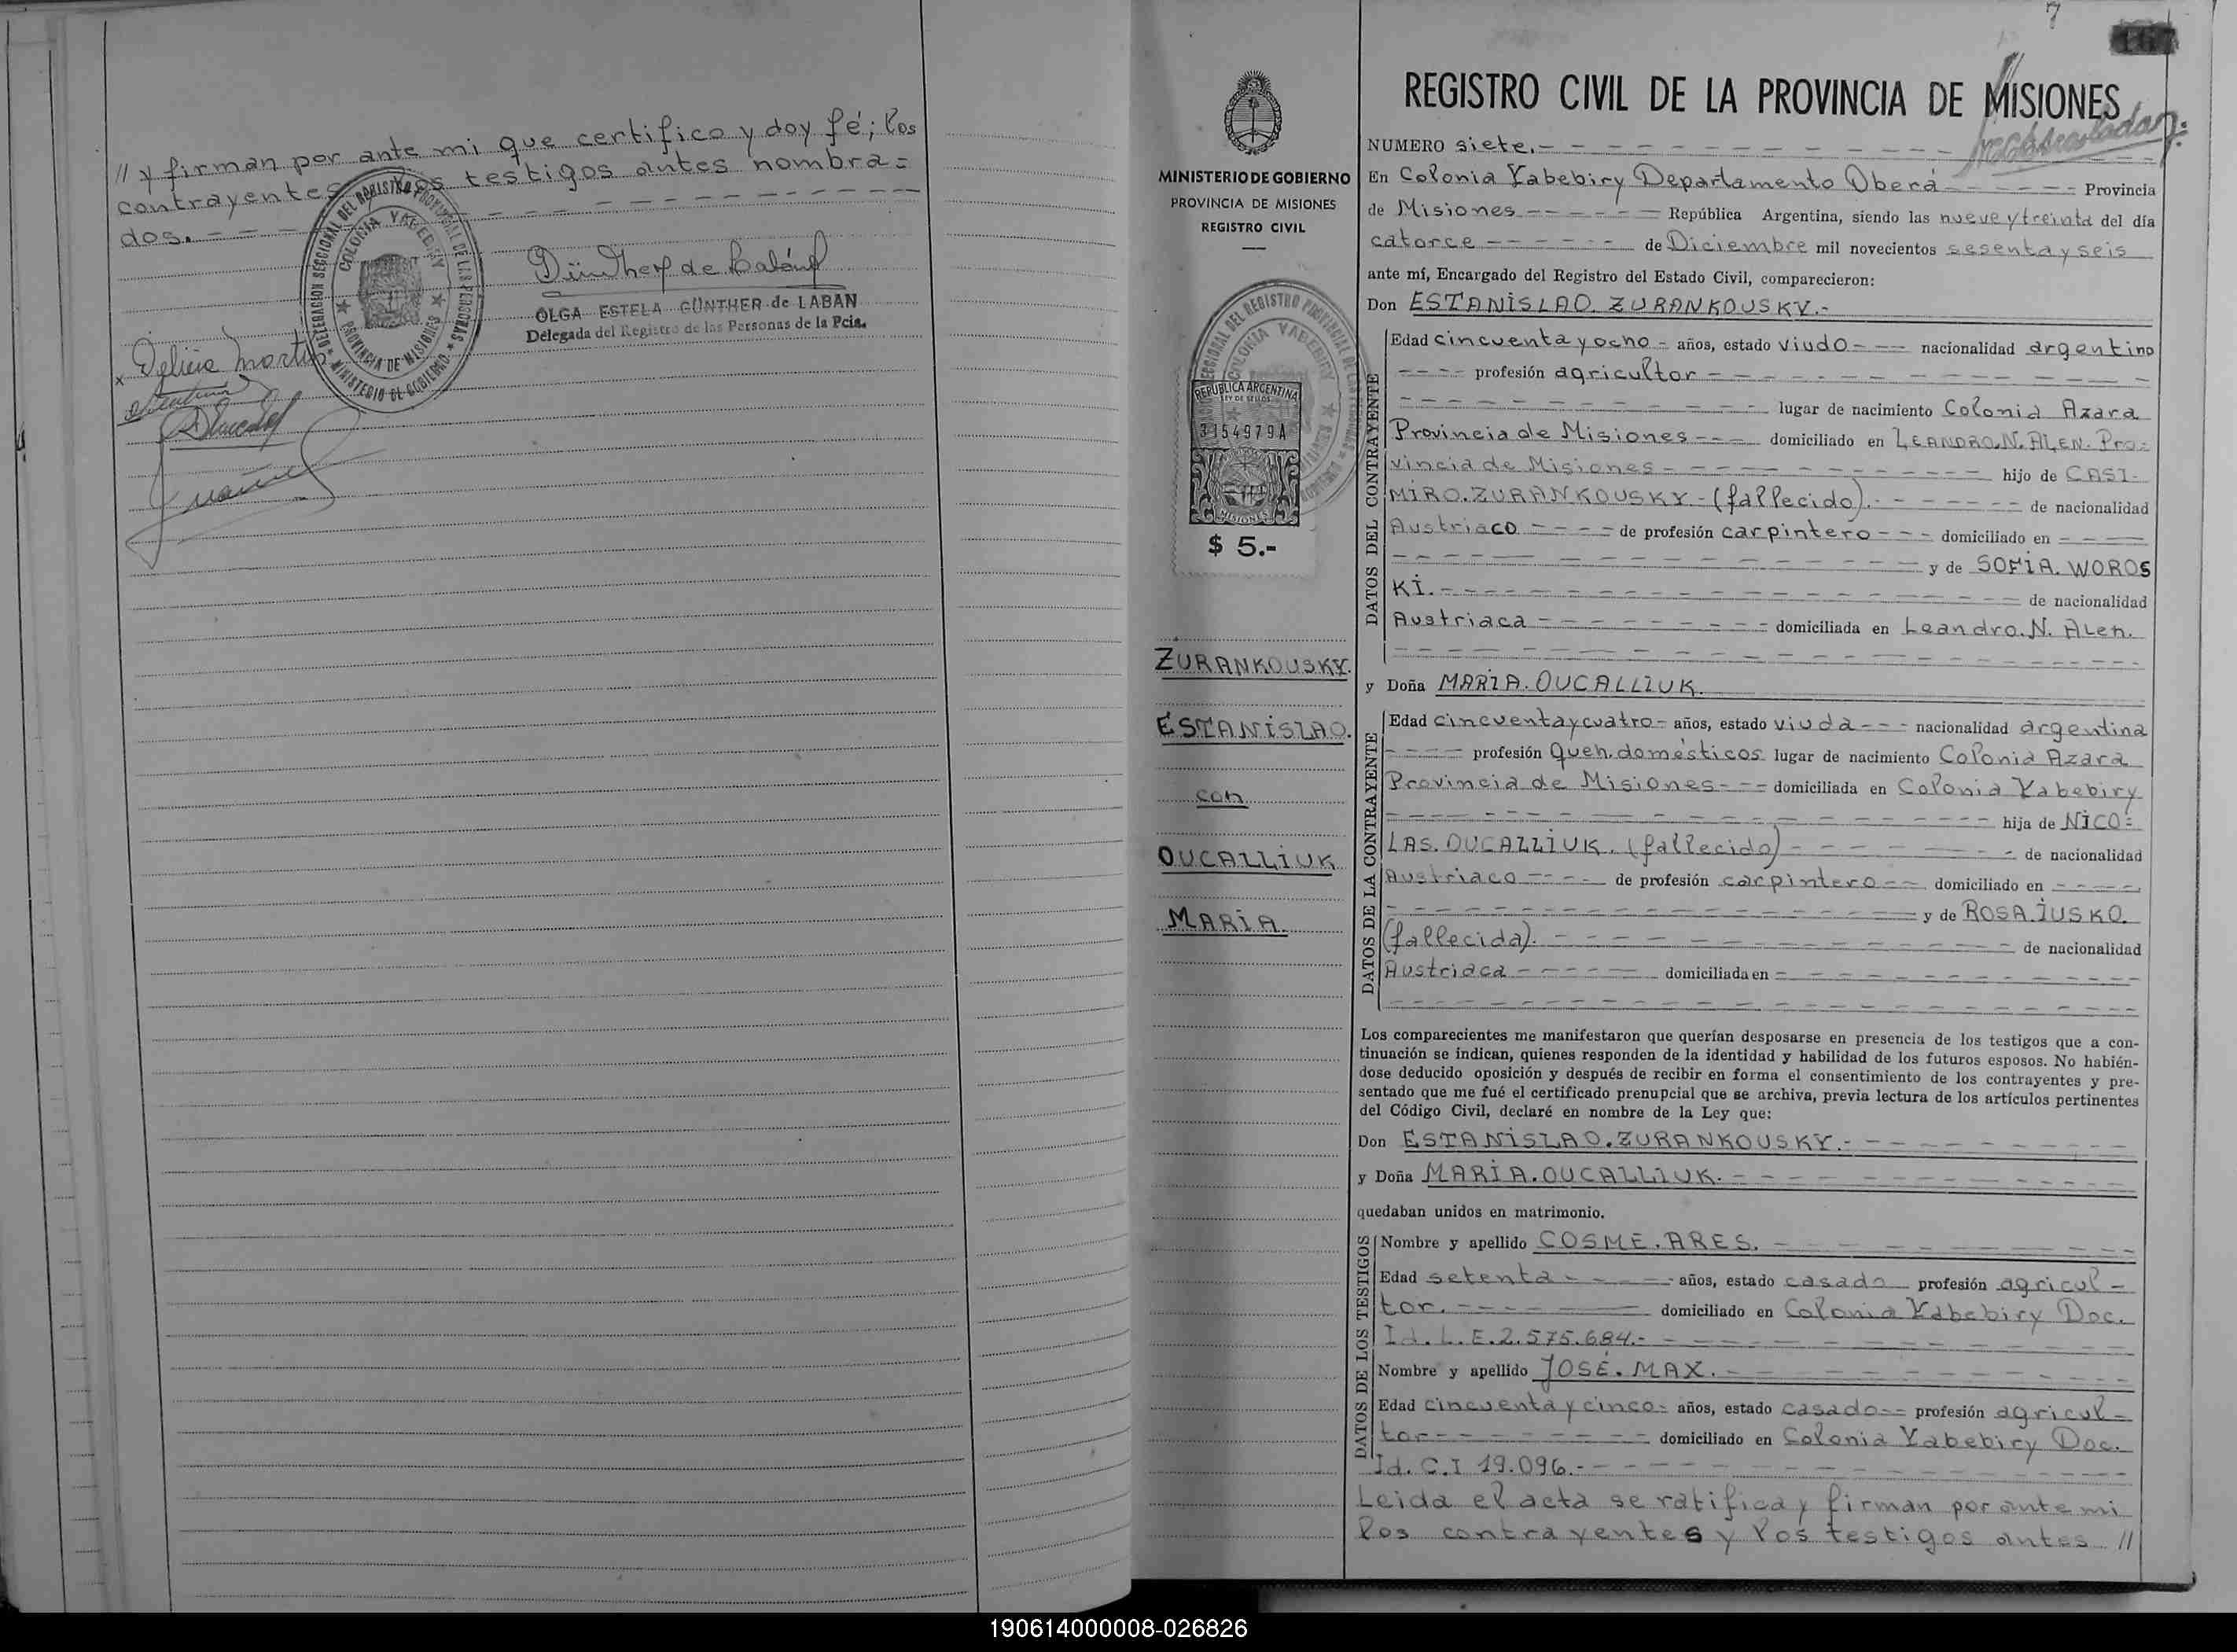 // y firman por ante mi que certifico y doy fé; los
contrayentes los testigos antes nombra=
dos.
DELEGACION SECCIONAL DEL REGISTRO PROVINCIAL DE LAS PERSONAS
COLONIA YABEBIRY
PROVINCIA DE MISIONES
MINISTERIO DE GOBIERNO
Günther de Labán
OLGA ESTELA GÜNTHER de LABAN
Delegada del Registro de las Personas de la Pcia.
x Delicia
7
REGISTRO CIVIL DE LA PROVINCIA DE MISIONES
MINISTERIO DE GOBIERNO
PROVINCIA DE MISIONES
REGISTRO CIVIL
REPUBLICA ARGENTINA
LEY DE SELLOS
3154979A
MISIONES
$ 5.-
ZURANKOUSKY.
ESTANISLAO.
con
OUCALLIUK
MARIA.
NUMERO siete.-
En Colonia Yabebiry Departamento Oberá Provincia
de Misiones República Argentina, siendo las nueve y treinta del día
catorce de Diciembre mil novecientos sesenta y seis
ante mí, Encargado del Registro del Estado Civil, comparecieron:
Don ESTANISLAO. ZURANKOUSKY.-
DATOS DEL CONTRAYENTE
Edad cincuenta y ocho - años, estado viudo - nacionalidad argentino
profesión agricultor
lugar de nacimiento Colonia Azara
Provincia de Misiones domiciliado en LEANDRO.N.ALEN. Pro=
vincia de Misiones hijo de CASI-
MIRO.ZURANKOUSKY-(fallecido). de nacionalidad
Austriaco de profesión carpintero domiciliado en
y de SOFIA. WOROS
KI. de nacionalidad
Austriaca domiciliada en Leandro.N. ALen.
y Doña MARIA. OUCALLIUK.
DATOS DE LA CONTRAYENTE
Edad cincuenta y cuatro- años, estado viuda nacionalidad argentina
profesión Queh.domésticos lugar de nacimiento Colonia Azara
Provincia de Misiones domiciliada en Colonia Yabebiry
hija de NICO=
LAS. OUCALLIUK. (fallecido) de nacionalidad
Austriaco de profesión carpintero domiciliado en
y de ROSA.IUSKO.
(fallecida). de nacionalidad
Austriaca domiciliada en
Los comparecientes me manifestaron que querían desposarse en presencia de los testigos que a con-
tinuación se indican, quienes responden de la identidad y habilidad de los futuros esposos. No habién-
dose deducido oposición y después de recibir en forma el consentimiento de los contrayentes y pre-
sentado que me fué el certificado prenupcial que se archiva, previa lectura de los artículos pertinentes
del Código Civil, declaré en nombre de la Ley que:
Don ESTANISLAO.ZURANKOUSKY.-
y Doña MARIA.OUCALLIUK.
quedaban unidos en matrimonio.
DATOS DE LOS TESTIGOS
Nombre y apellido COSME.ARES.
Edad setenta años, estado casado profesión agricul-
tor. domiciliado en Colonia Yabebiry Doc.
Id.L.E.2.575.684.-
Nombre y apellido JOSÉ.MAX.
Edad cincuenta y cinco- años, estado casado profesión agricul-
tor domiciliado en Colonia Yabebiry Doc.
Id.C.I 19.096.-
Leida el acta se ratifica y firman por ante mi
los contrayentes y los testigos antes //
190614000008-026826